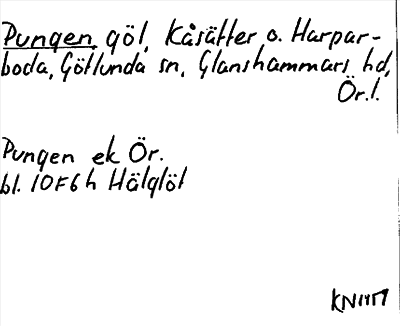 Pungen, göl, Kåsätter o. Harpar-
boda, Götlunda sn, Glanshammars hd,
Ör.l.
Pungen ek Ör.
bl. 10F6h Hälglöt